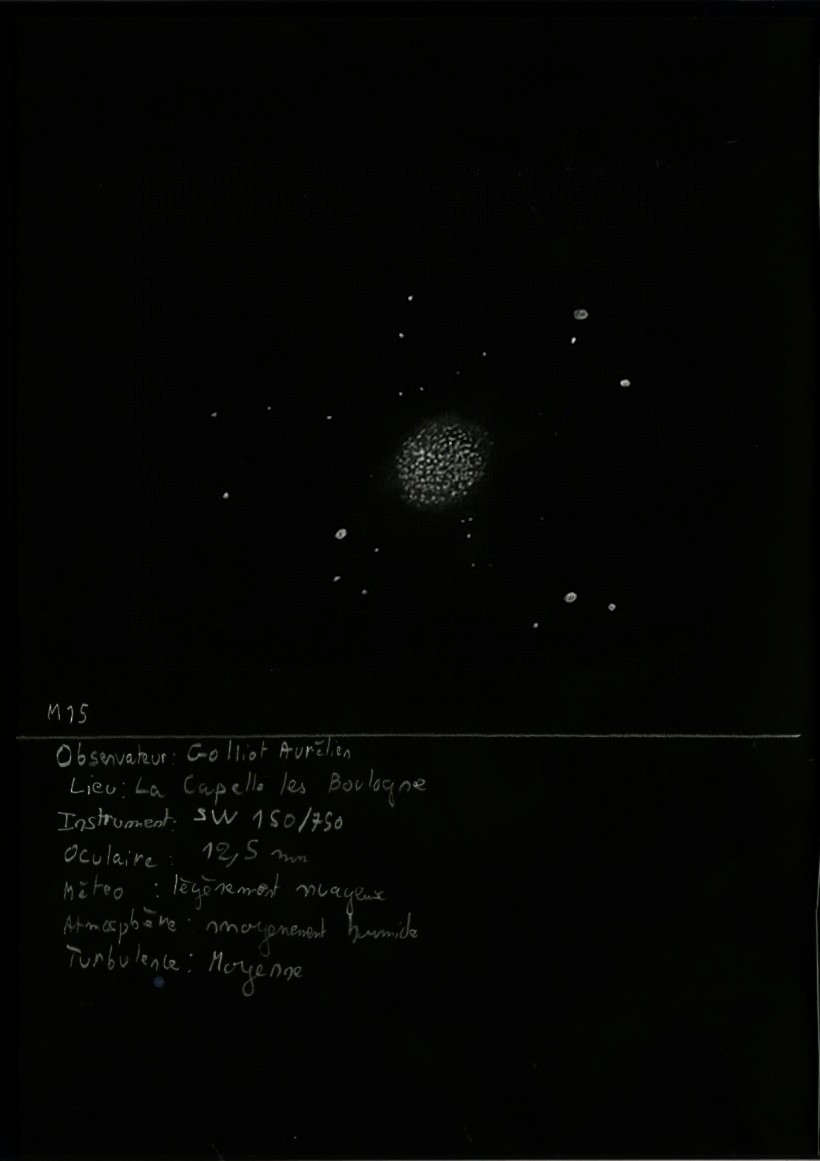 M15
Observateur: Golliot Aurélien
Lieu: La Capelle les Boulogne
Instrument: SW 150/750
Oculaire: 12,5 mm
Météo : légèrement nuageux
Atmosphère: moyenement humide
Turbulence: Moyenne